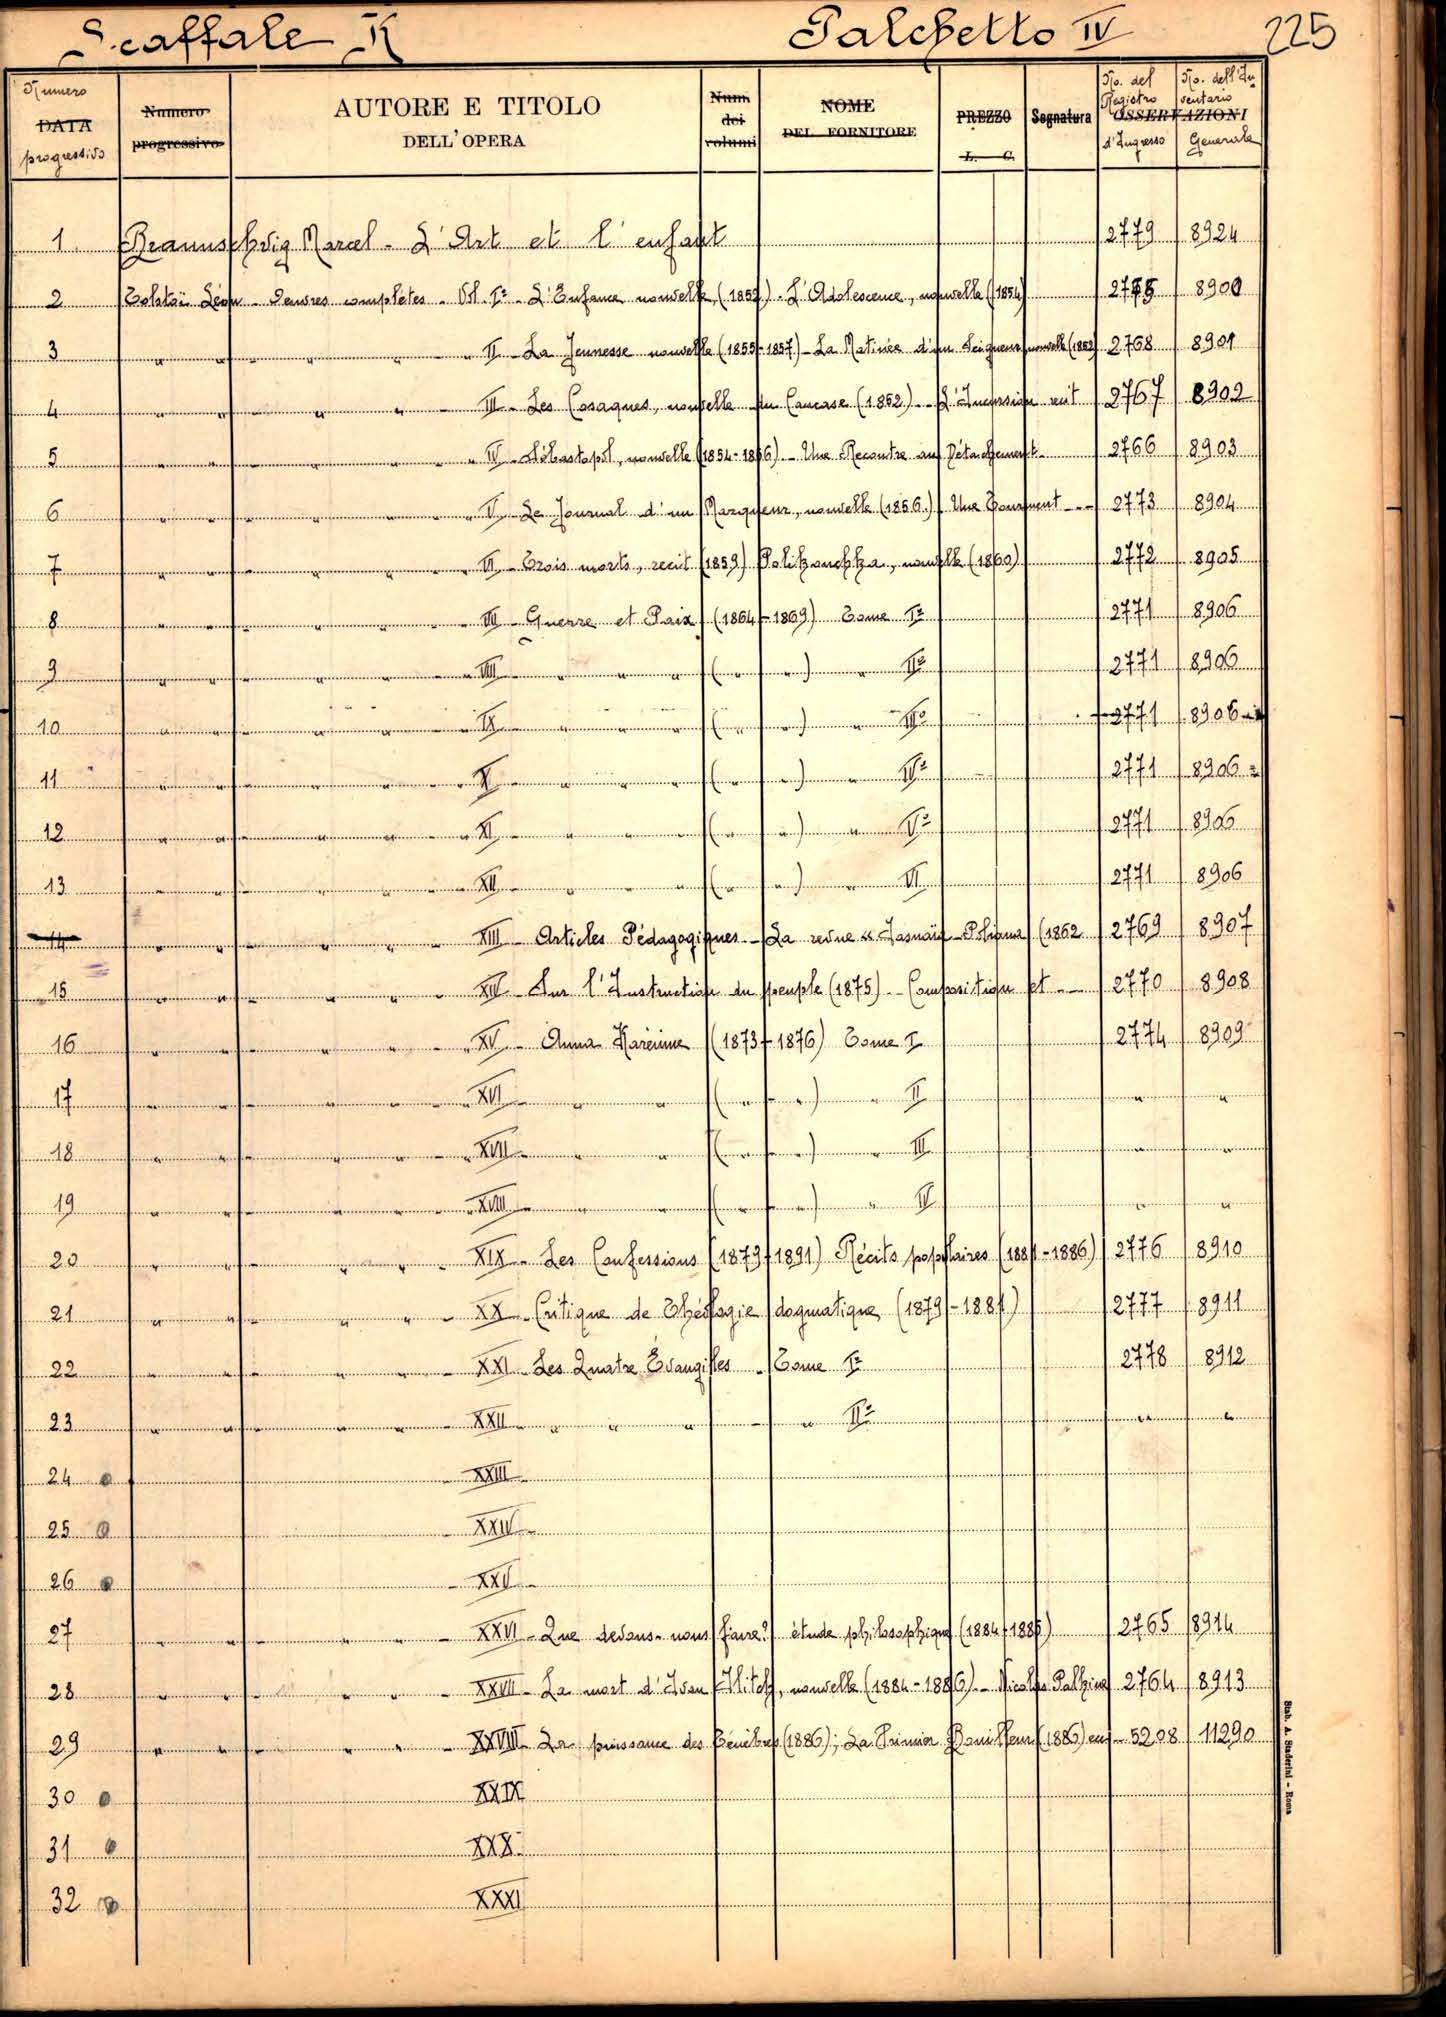 Scaffale K Palchetto IV 225
Numero DATA progressivo Numero progressivo AUTORE E TITOLO DELL'OPERA Num. dei volumi NOME DEL FORNITORE PREZZO L. C. Segnatura OSSERVAZIONI No. del Registro d'Ingresso No. dell'Inventario Generale
1 Braunschvig Marcel - L'Art et l'enfant 2779 8924
2 Tolstoï Léon - Oeuvres complètes - Vol. Iº - L'Enfance nouvelle (1852) - L'Adolescence, nouvelle (1854) 2775 8900
3 " " " " " II - La Jeunesse nouvelle (1855-1857) - La Matinée d'un Seigneur, nouvelle (1852) 2768 8901
4 " " " " III - Les Cosaques, nouvelle du Caucase (1852) - L'Incursion récit 2767 8902
5 " " " " " IV - Sébastopol, nouvelle (1854-1856) - Une Recontre au Détachement - 2766 8903
6 " " " " " V - Le Journal d'un Marqueur, nouvelle (1856.) Une Tourment - - - 2773 8904
7 " " " " " VI - Trois morts, récit (1859) Polikouchka, nouvelle (1860) 2772 8905
8 " " " " " VII - Guerre et Paix (1864-1869) Tome Iº 2771 8906
9 " " " " " VIII - " " " ( " - " ) " IIº 2771 8906
10 " " " " " IX - " " " ( " " ) " IIIº 2771 8906
11 " " " " " X - " " " ( " " ) " IVº 2771 8906
12 " " " " " XI - " " " ( " " ) " Vº 2771 8906
13 " " " " " XII - " " " ( " " ) " VI 2771 8906
14 " " " " " XIII - Articles Pédagogiques - La revue « Jasnaïa-Poliana (1862 2769 8907
15 " " " " XIV - Sur l'Instruction du peuple (1875) - Composition et - - 2770 8908
16 " " " " XV - Anna Karénine (1873-1876) Tome I 2774 8909
17 " " " " XVI - " " ( " - " ) " II " "
18 " " " " XVII - " " ( " - " ) " III " "
19 " " " " XVIII - " " ( " - " ) " IV " "
20 " " " " XIX - Les Confessions (1879-1891) Récits populaires (1881-1886) 2776 8910
21 " " " " XX - Critique de Théologie dogmatique (1879-1881) 2777 8911
22 " " " " XXI - Les Quatre Évangilles - Tome Iº 2778 8912
23 " " " " XXII - " " " - " IIº " "
24 - XXIII -
25 - XXIV -
26 - XXV -
27 " " " " XXVI - Que devons-nous faire? étude philosophique (1884-1885) 2765 8914
28 " " " " XXVII - La mort d'Ivan Ilitch, nouvelle (1884-1886) - Nicolas Palkine 2764 8913
29 " " " " XXVIII - La puissance des Ténèbres (1886); La Primier Bouilleur (1886) en - 5208 11290
30 XXIX
31 XXX -
32 XXXI
Stab. A. Staderini - Roma